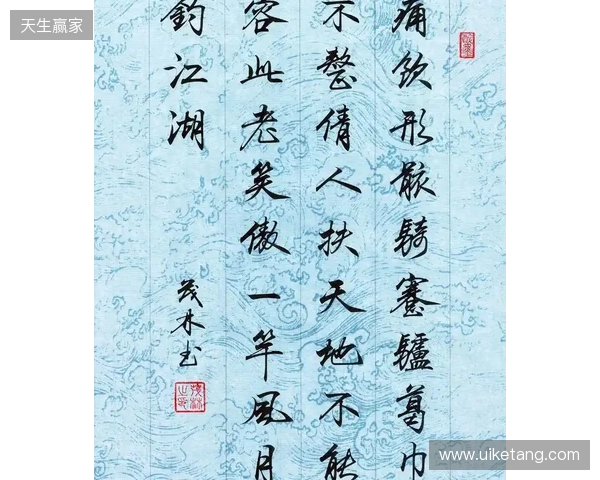 天生赢家
痛飲形骸騎蹇驢葛巾
不整倩人扶天地不能
容此老笑傲一竿風月
釣江湖
茂林书
www.uiketang.com